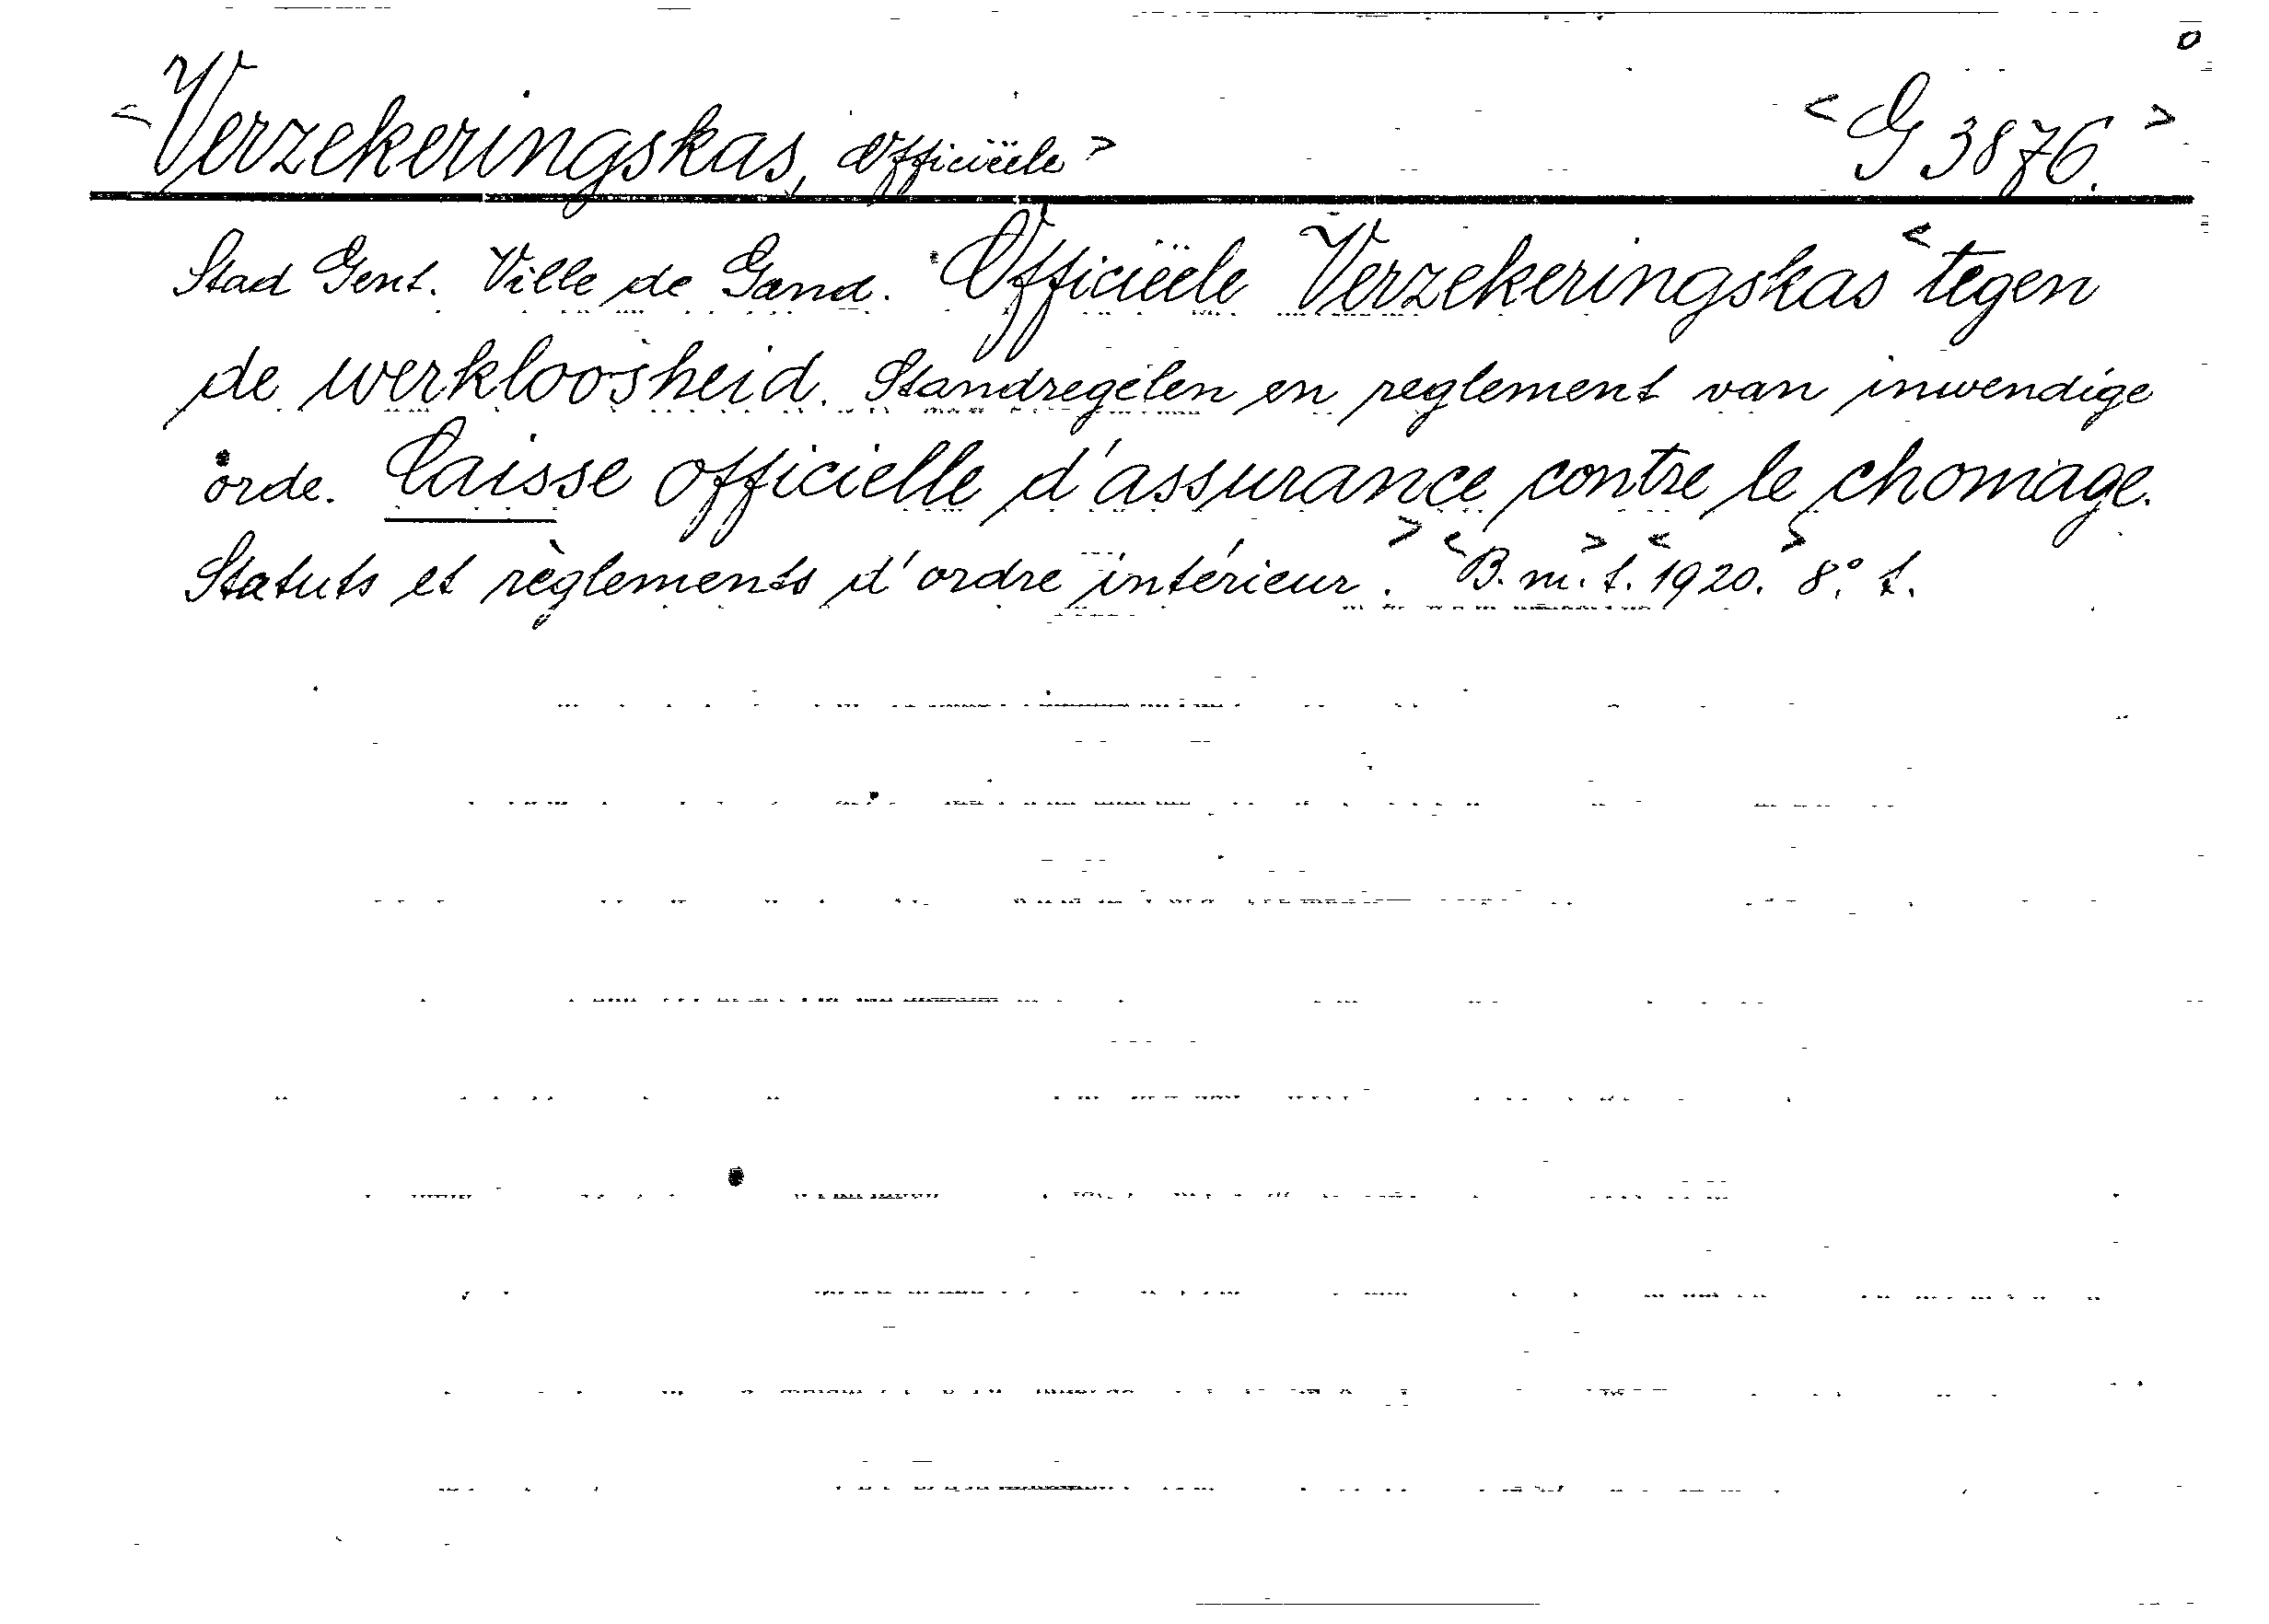 <Verzekeringskas, Officiëele> <G 3876.>
Stad Gent. Ville de Gand. Officiëele Verzekeringskas <tegen
de werkloosheid. Standregelen en reglement van inwendige
orde. Caisse officielle d'assurance contre le chomage.
Statuts et règlements d'ordre intérieur.> <B. m. t.> <1920.> 8° t.